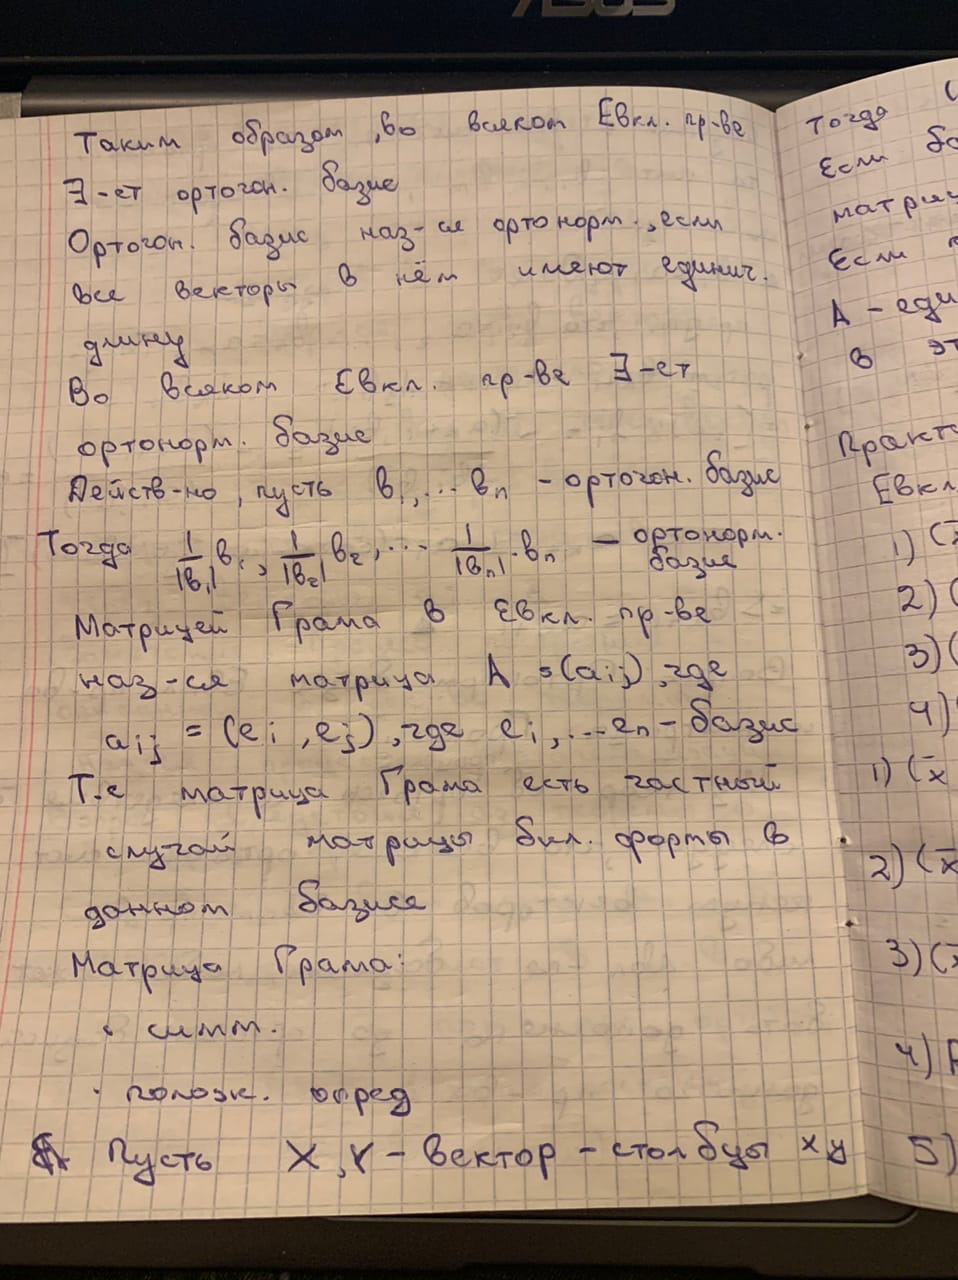 ASUS
Таким образом, во всяком Евкл. пр-ве
∃-ет ортогон. базис
Ортогон. базис наз-ся ортонорм., если
все векторы в нём имеют единич.
длину
Во всяком Евкл. пр-ве ∃-ет
ортонорм. базис
Действ-но, пусть в₁,...вₙ - ортогон. базис
Тогда 1/|в₁| в₁, 1/|в₂| в₂,... 1/|вₙ|·вₙ — ортонорм.
базис
Матрицей Грама в Евкл. пр-ве
наз-ся матрица A =(aᵢⱼ), где
aᵢⱼ = (eᵢ, eⱼ), где eᵢ,...eₙ - базис
Т.е матрица Грама есть частный
случай матрицы бил. формы в
данном базисе
Матрица Грама:
· симм.
· полож. опред
Пусть X, Y - вектор-столбцы x y
Тогда
Если
матри
Если
A - еди
в эт
Практ
Евкл
1) (x
2) (
3) (
4)
1) (x̄
2) (x̄
3) (x
4)
5)